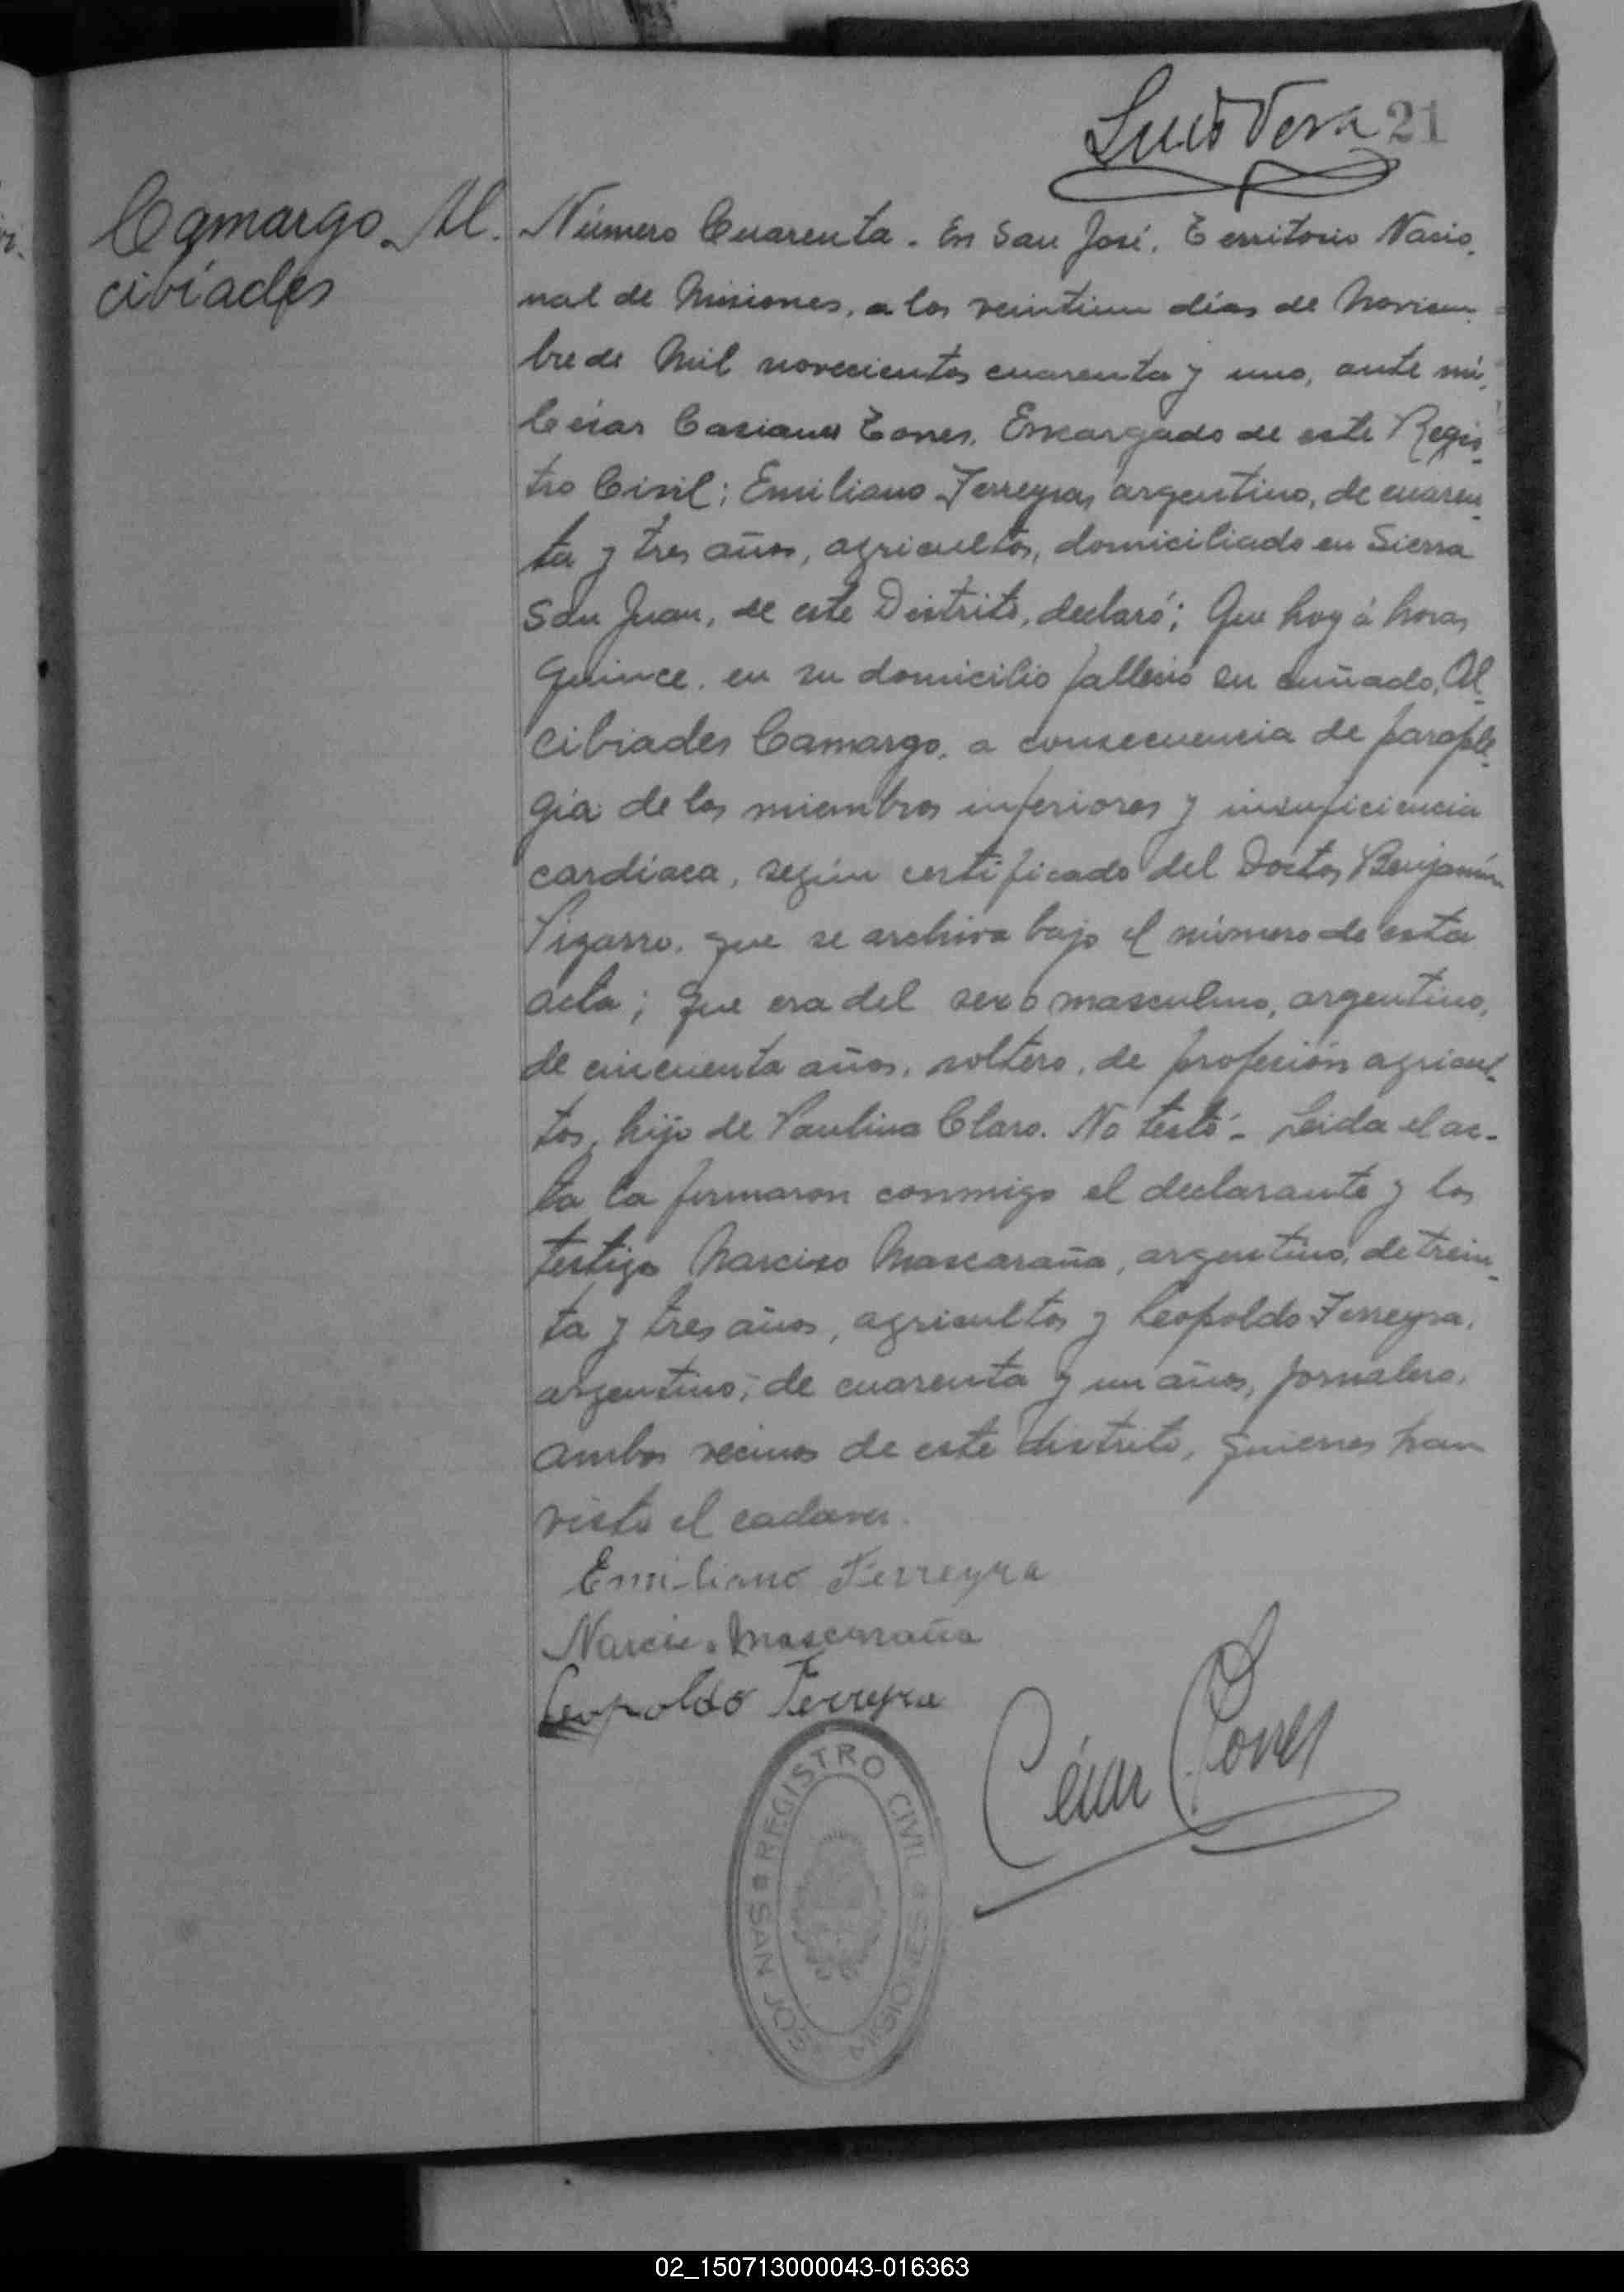 Luis Vera 21
Camargo Al-
cibíades
Número Cuarenta. En San José, Territorio Nacio-
nal de Misiones, a los veintiun días de Noviem-
bre de Mil novecientos cuarenta y uno, ante mí,
César Casiano Torres, Encargado de este Regis-
tro Civil; Emiliano Ferreyra, argentino, de cuaren-
ta y tres años, agricultor, domiciliado en Sierra
San Juan, de este Distrito, declaró; Que hoy á horas
quince, en su domicilio falleció su cuñado, Al-
cibiades Camargo, a consecuencia de paraple-
gia de los miembros inferiores y insuficiencia
cardíaca, según certificado del Doctor Benjamín
Pizarro, que se archiva bajo el número de esta
acta; Que era del sexo masculino, argentino,
de cincuenta años, soltero, de profesión agricul-
tor, hijo de Paulina Claro. No testó - Leida el ac-
ta la firmaron conmigo el declarante y los
testigos Narciso Mascaraña, argentino, de trein-
ta y tres años, agricultor y Leopoldo Ferreyra,
argentino, de cuarenta y un años, jornalero,
ambos vecinos de este distrito, quienes han
visto el cadaver.
Emiliano Ferreyra
Narciso Mascaraña
Leopoldo Ferreyra
César Torres
REGISTRO CIVIL
SAN JOSÉ MISIONES
02_150713000043-016363